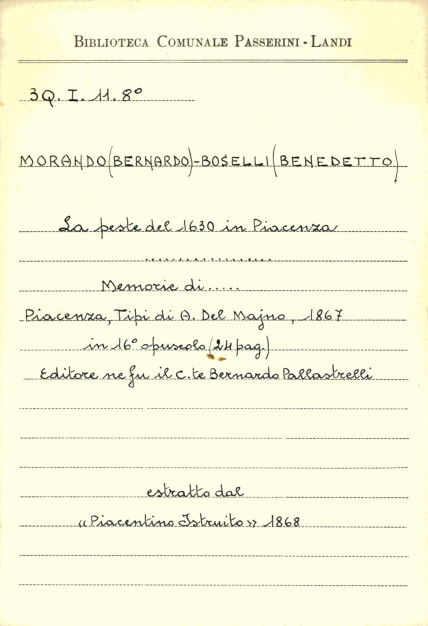 BIBLIOTECA COMUNALE PASSERINI - LANDI
3Q. I. 11. 8°
MORANDO (BERNARDO) - BOSELLI (BENEDETTO)
La peste del 1630 in Piacenza
................
Memorie di .....
Piacenza, Tipi di A. Del Majno, 1867
in 16° opuscolo (24 pag.)
Editore ne fu il C.te Bernardo Pallastrelli
estratto dal
« Piacentino Istruito » 1868